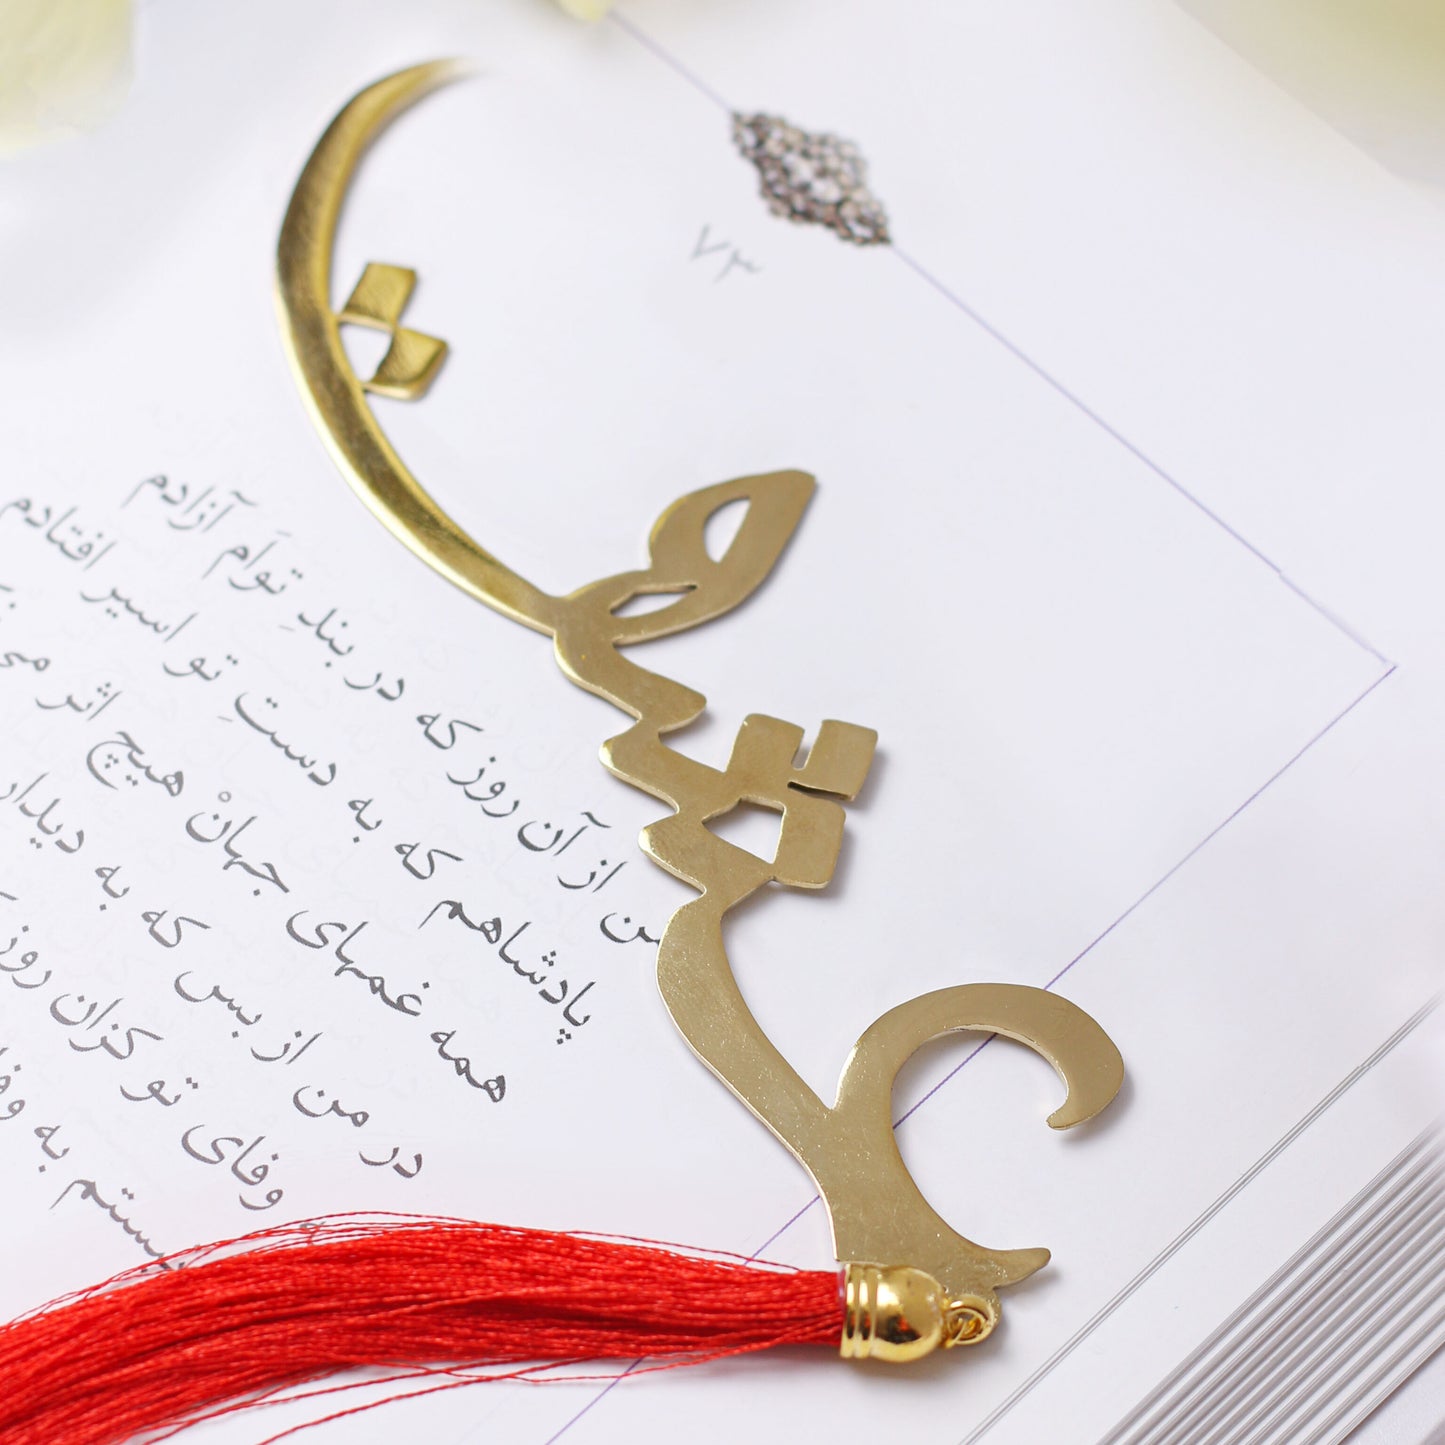 عشق
۷۳
من از آن روز که در بندِ توَام آزادم
پادشاهم که به دستِ تو اسیر افتادم
همه غمهای جهانْ هیچ اثر می
در من از بس که به دیدارِ
وفای تو کزان روز
به